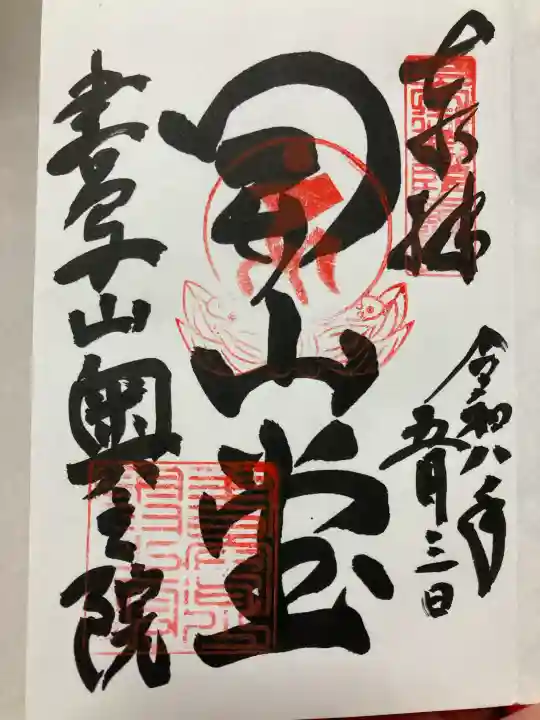 奉拝
令和八年
五月三日
開山堂
書写山奥之院